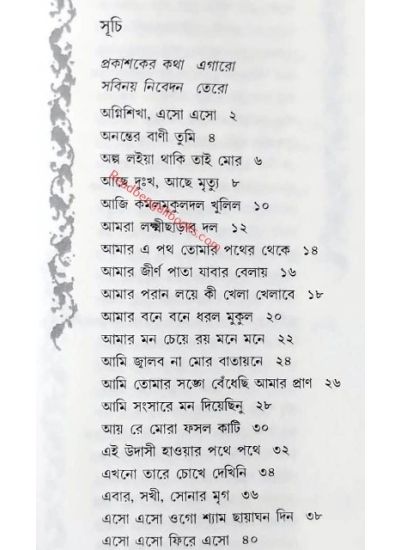 সূচি
প্রকাশকের কথা এগারো
সবিনয় নিবেদন তেরো
অগ্নিশিখা, এসো এসো ২
অনন্তের বাণী তুমি ৪
অল্প লইয়া থাকি তাই মোর ৬
আছে দুঃখ, আছে মৃত্যু ৮
আজি কমলমুকুলদল খুলিল ১০
আমরা লক্ষ্মীছাড়ার দল ১২
আমার এ পথ তোমার পথের থেকে ১৪
আমার জীর্ণ পাতা যাবার বেলায় ১৬
আমার পরান লয়ে কী খেলা খেলাবে ১৮
আমার বনে বনে ধরল মুকুল ২০
আমার মন চেয়ে রয় মনে মনে ২২
আমি জ্বালব না মোর বাতায়নে ২৪
আমি তোমার সঙ্গে বেঁধেছি আমার প্রাণ ২৬
আমি সংসারে মন দিয়েছিনু ২৮
আয় রে মোরা ফসল কাটি ৩০
এই উদাসী হাওয়ার পথে পথে ৩২
এখনো তারে চোখে দেখিনি ৩৪
এবার, সখী, সোনার মৃগ ৩৬
এসো এসো ওগো শ্যাম ছায়াঘন দিন ৩৮
এসো এসো ফিরে এসো ৪০
Readbengalibooks.com